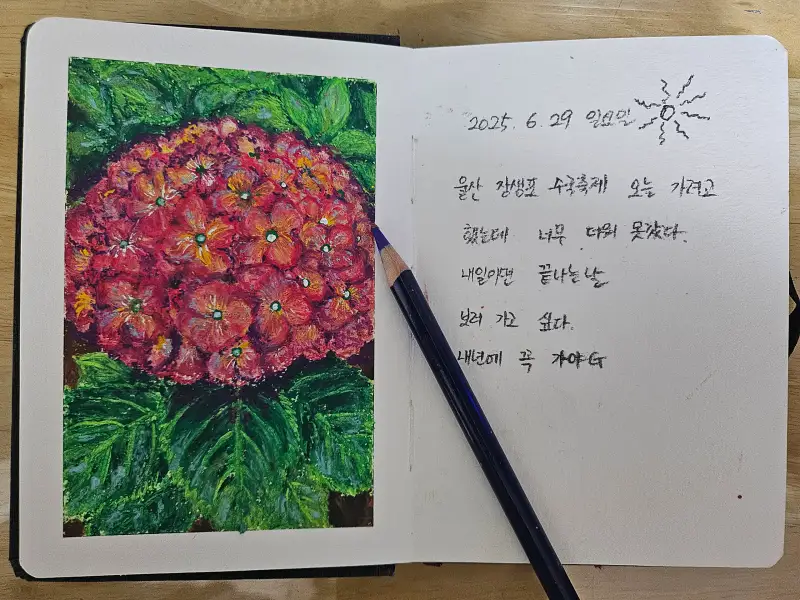 2025. 6. 29 일요일
울산 장생포 수국축제 오늘 가려고
했는데 너무 더워 못갔다.
내일이면 끝나는 날
보러 가고 싶다.
내년에 꼭 가야G